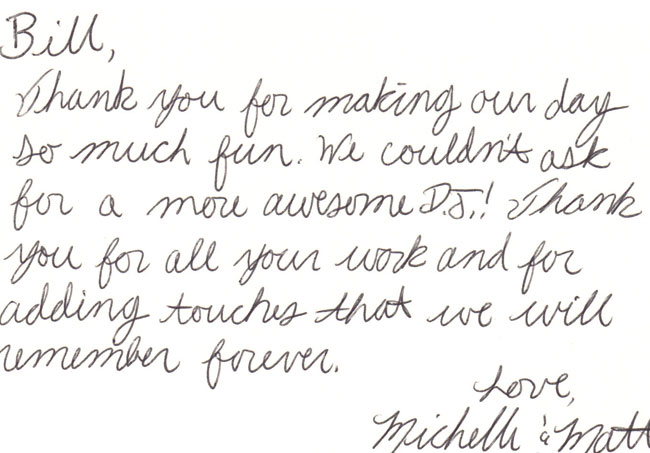 Bill,
Thank you for making our day
so much fun. We couldn't ask
for a more awesome D.J.! Thank
you for all your work and for
adding touches that we will
remember forever.
Love,
Michelle & Matt